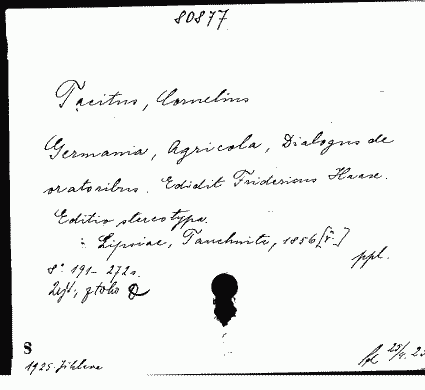 80877
Tacitus, Cornelius
Germania, Agricola, Dialogus de
oratoribus. Edidit Fridericus Haase.
Editio stereotypa.
Lipsiae, Tauchnitz, 1856
ppl.
8° 191-272 s.
z toho
S
1925 Jihlava